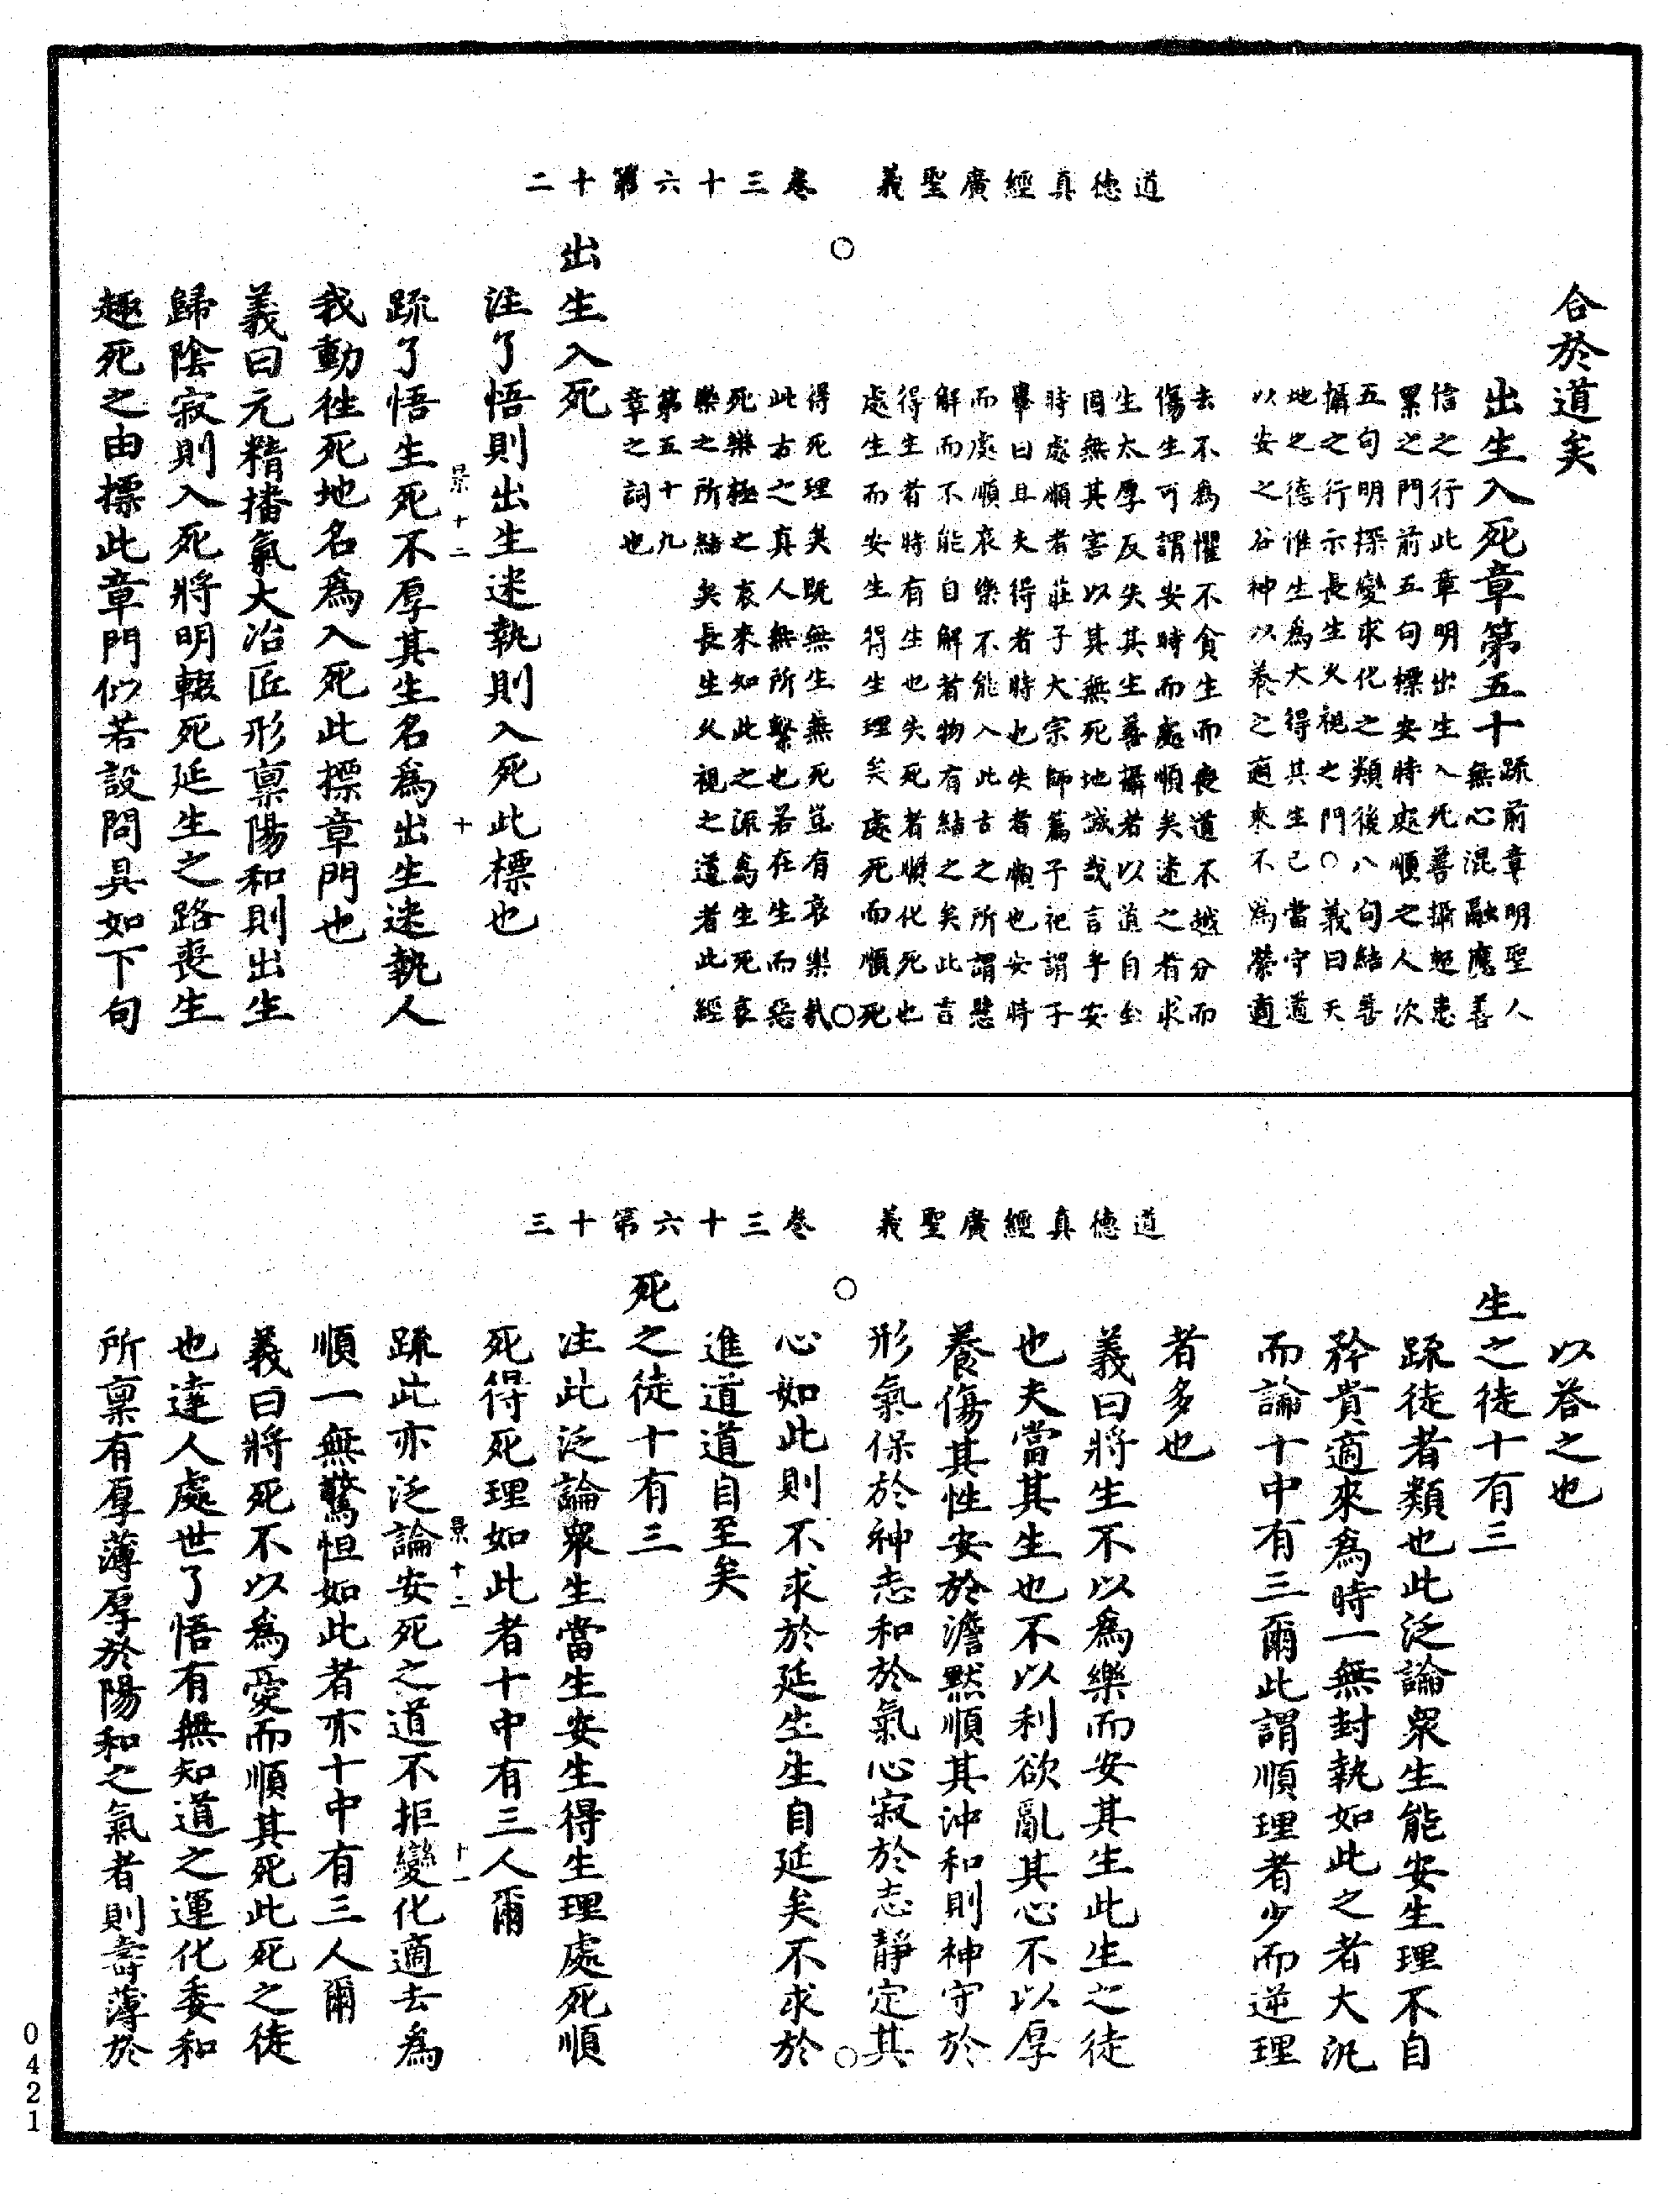 道德真經廣聖義　卷三十六第十二
合於道矣
出生入死章第五十
疏前章明聖人
無心混融應善
信之行此章明出生入死善攝起患
累之門前五句標安時處順之人次
五句明操變求化之類後八句結善
攝之行示長生久視之門○義曰天
地之德惟生為大得其生已當守道
以安之谷神以養之適來不為榮適
去不為懼不貪生而喪道不越分而
傷生可謂安時而處順矣達之者求
生太厚反失其生善攝者以道自全
固無其害以其無死地誠哉言乎安
時處順者莊子大宗師篇子祀謂子
轝曰且夫得者時也失者順也安時
而處順哀樂不能入此古之所謂懸
解而不能自解者物有結之矣此言
得生者時有生也失死者順化死也
處生而安生得生理矣處死而順死
得死理矣既無生無死豈有哀樂哉
此古之真人無所繫也若在生而惡
死樂極之哀來知此之源為生死哀
樂之所結矣長生久視之道者此經
第五十九
章之詞也
出生入死
注了悟則出生迷執則入死此標也
疏了悟生死不厚其生名為出生迷執人
景十二
十
我動徃死地名為入死此摽章門也
義曰元精播氣大冶匠形稟陽和則出生
歸陰寂則入死將明輟死延生之路喪生
趣死之由摽此章門似若設問具如下句
道德真經廣聖義　卷三十六第十三
以荅之也
生之徒十有三
疏徒者類也此泛論衆生能安生理不自
矜貴適來為時一無封執如此之者大汎
而論十中有三爾此謂順理者少而逆理
者多也
義曰將生不以為樂而安其生此生之徒
也夫當其生也不以利欲亂其心不以厚
養傷其性安於澹默順其沖和則神守於
形氣保於神志和於氣心寂於志靜定其
心如此則不求於延生生自延矣不求於
進道道自至矣
死之徒十有三
注此泛論衆生當生安生得生理處死順
死得死理如此者十中有三人爾
疏此亦泛論安死之道不拒變化適去為
景十二
十一
順一無驚怛如此者亦十中有三人爾
義曰將死不以為憂而順其死此死之徒
也達人處世了悟有無知道之運化委和
所稟有厚薄厚於陽和之氣者則壽薄於
0421